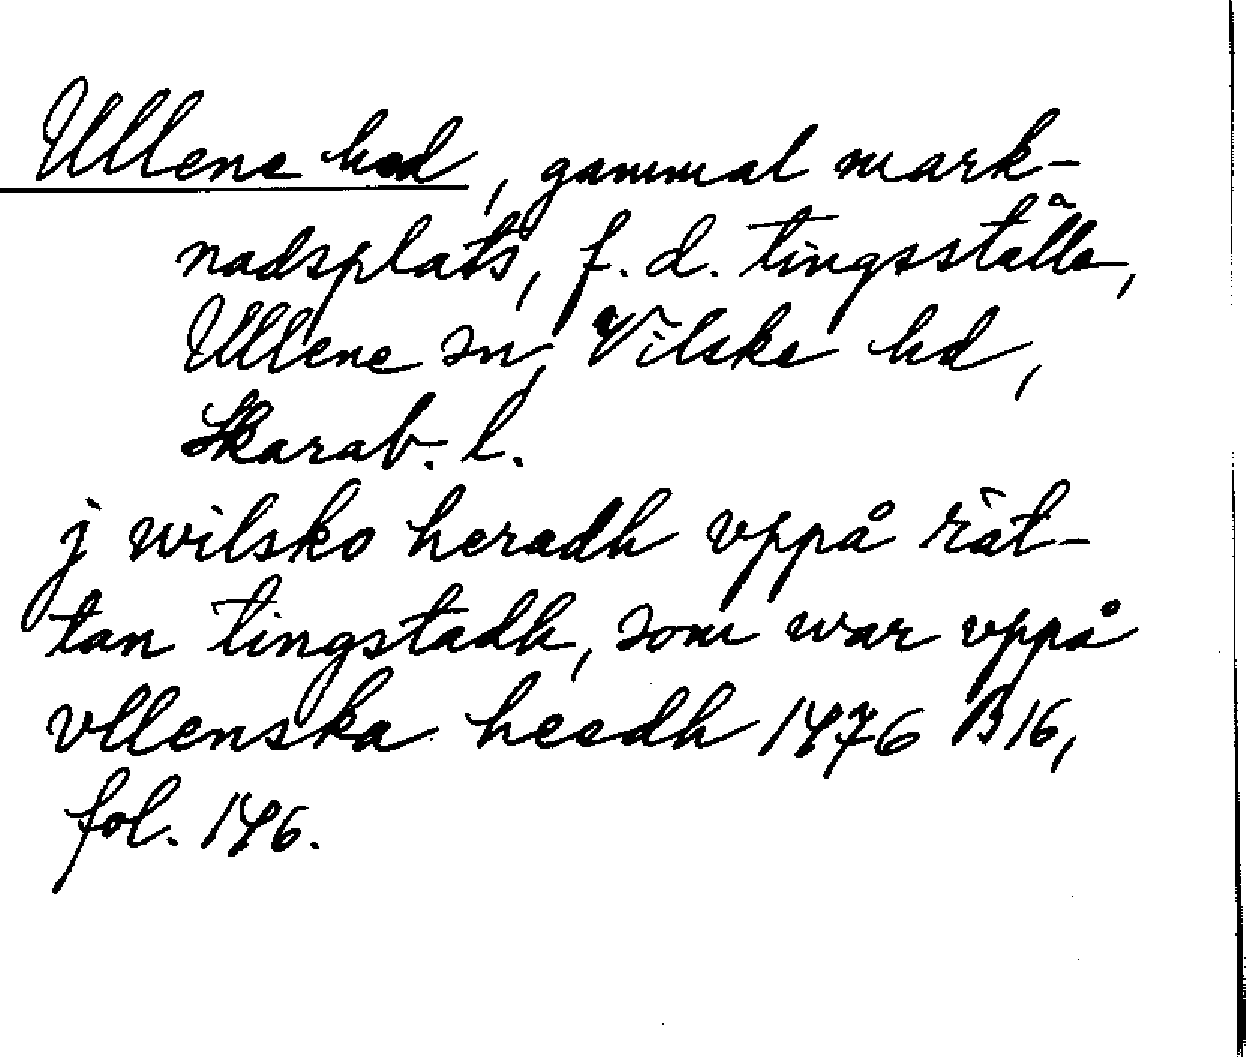 Ullene hed, gammal mark-
nadsplats, f. d. tingsställe,
Ullene sn, Vilske hd,
Skarab. l.
j wilsko heradh vppå rät-
tan tingstadh, som war vppå
vllenska heedh 1476 B16,
fol. 146.